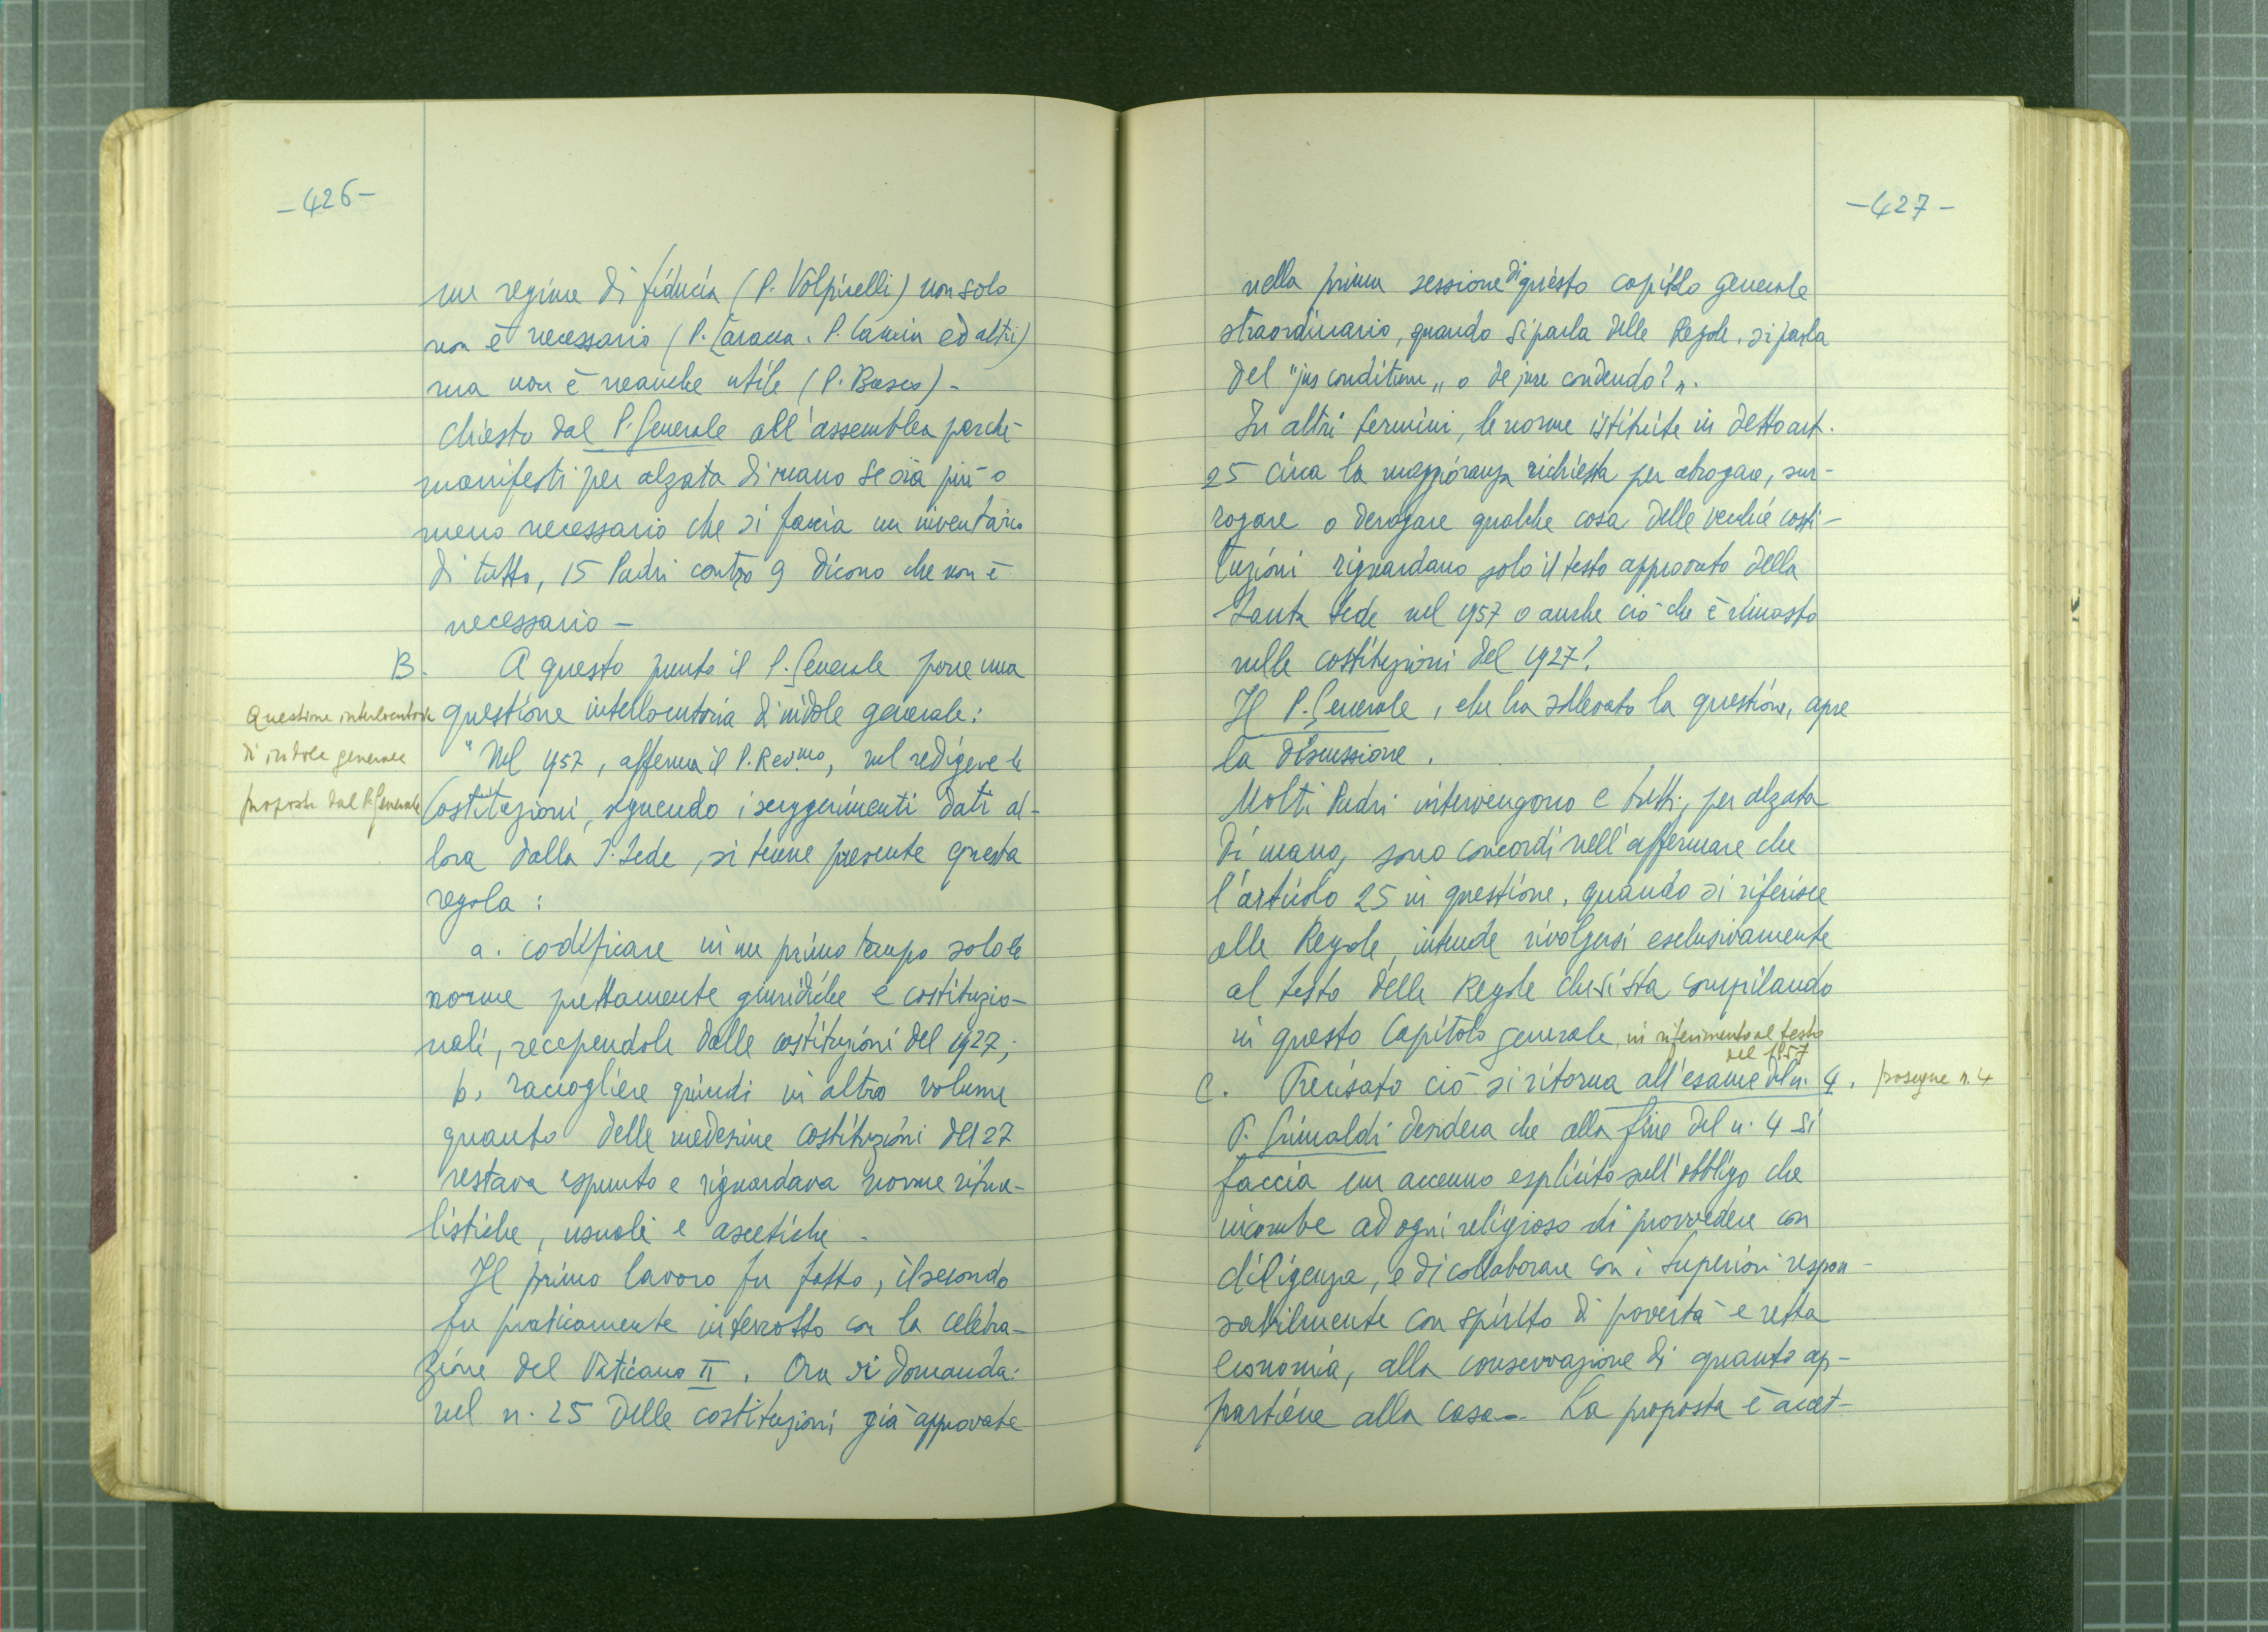 -426-
un regime di fiducia (P. Volpicelli) non solo
non è necessario (P. ed altri)
ma non è neanche utile (P. Bosco) -
Chiesto dal P. Generale all'assemblea perchè
manifesti per alzata di mano se sia più o
meno necessario che si faccia un inventario
di tutto, 15 Padri contro 9 dicono che non è
necessario -
B. A questo punto il P. Generale pone una
Questione interlocutoria
di indole generale
proposta dal P. Generale
questione interlocutoria di indole generale:
"Nel 1957, afferma il P. Rev.mo, nel redigere le
Costituzioni, seguendo i suggerimenti dati al-
lora dalla S. Sede, si tenne presente questa
regola:
a. codificare in un primo tempo solo le
norme prettamente giuridiche e costituzio-
nali, recependole dalle costituzioni del 1927;
b. raccogliere quindi in altro volume
quanto delle medesime costituzioni del 27
restava espunto e riguardava norme ritua-
listiche, usuali e ascetiche.
Il primo lavoro fu fatto, il secondo
fu praticamente interrotto con la celebra-
zione del Vaticano II. Ora si domanda:
nel n. 25 delle costituzioni già approvate
-427-
nella prima sessione di questo capitolo generale
straordinario, quando si parla delle Regole, si parla
del "jus conditum„ o de jure condendo?„.
In altri termini, le norme istituite in detto art.
25 circa la maggioranza richiesta per abrogare, sur-
rogare o derogare qualche cosa delle vecchie costi-
tuzioni riguardano solo il testo approvato della
Santa Sede nel 1957 o anche ciò che è rimasto
nelle costituzioni del 1927?
Il P. Generale, che ha sollevato la questione, apre
la discussione.
Molti Padri intervengono e tutti, per alzata
di mano, sono concordi nell'affermare che
l'articolo 25 in questione, quando si riferisce
alle Regole, intende rivolgersi esclusivamente
al testo delle Regole che si sta compilando
in questo Capitolo generale, in riferimento al testo
del 1957
C. Precisato ciò si ritorna all'esame del n. 4. prosegue n. 4
P. Grimaldi desidera che alla fine del n. 4 si
faccia un accenno esplicito sull'obbligo che
incombe ad ogni religioso di provvedere con
diligenza, e di collaborare con i Superiori respon-
sabilmente con spirito di povertà e retta
economia, alla conservazione di quanto ap-
partiene alla casa -. La proposta è accet-